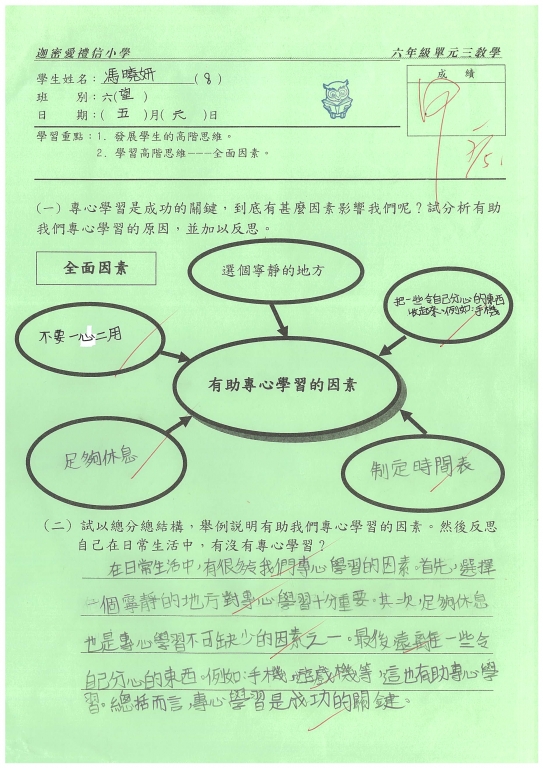 迦密愛禮信小學 六年級單元三教學
學生姓名：馮曉妍(8)
班 別：六(望)
日 期：(五)月(六)日
成 績
甲
學習重點：1. 發展學生的高階思維。
2. 學習高階思維---全面因素。
(一) 專心學習是成功的關鍵，到底有甚麼因素影響我們呢？試分析有助
我們專心學習的原因，並加以反思。
全面因素
選個寧靜的地方
把一些令自己分心的東西
收起來，例如：手機
不要一心二用
有助專心學習的因素
足夠休息
制定時間表
(二) 試以總分總結構，舉例說明有助我們專心學習的因素。然後反思
自己在日常生活中，有沒有專心學習？
在日常生活中，有很多令我們專心學習的因素。首先，選擇
一個寧靜的地方對專心學習十分重要。其次，足夠休息
也是專心學習不可缺少的因素之一。最後遠離一些令
自己分心的東西。例如：手機、遊戲機等，這也有助專心學
習。總括而言，專心學習是成功的關鍵。